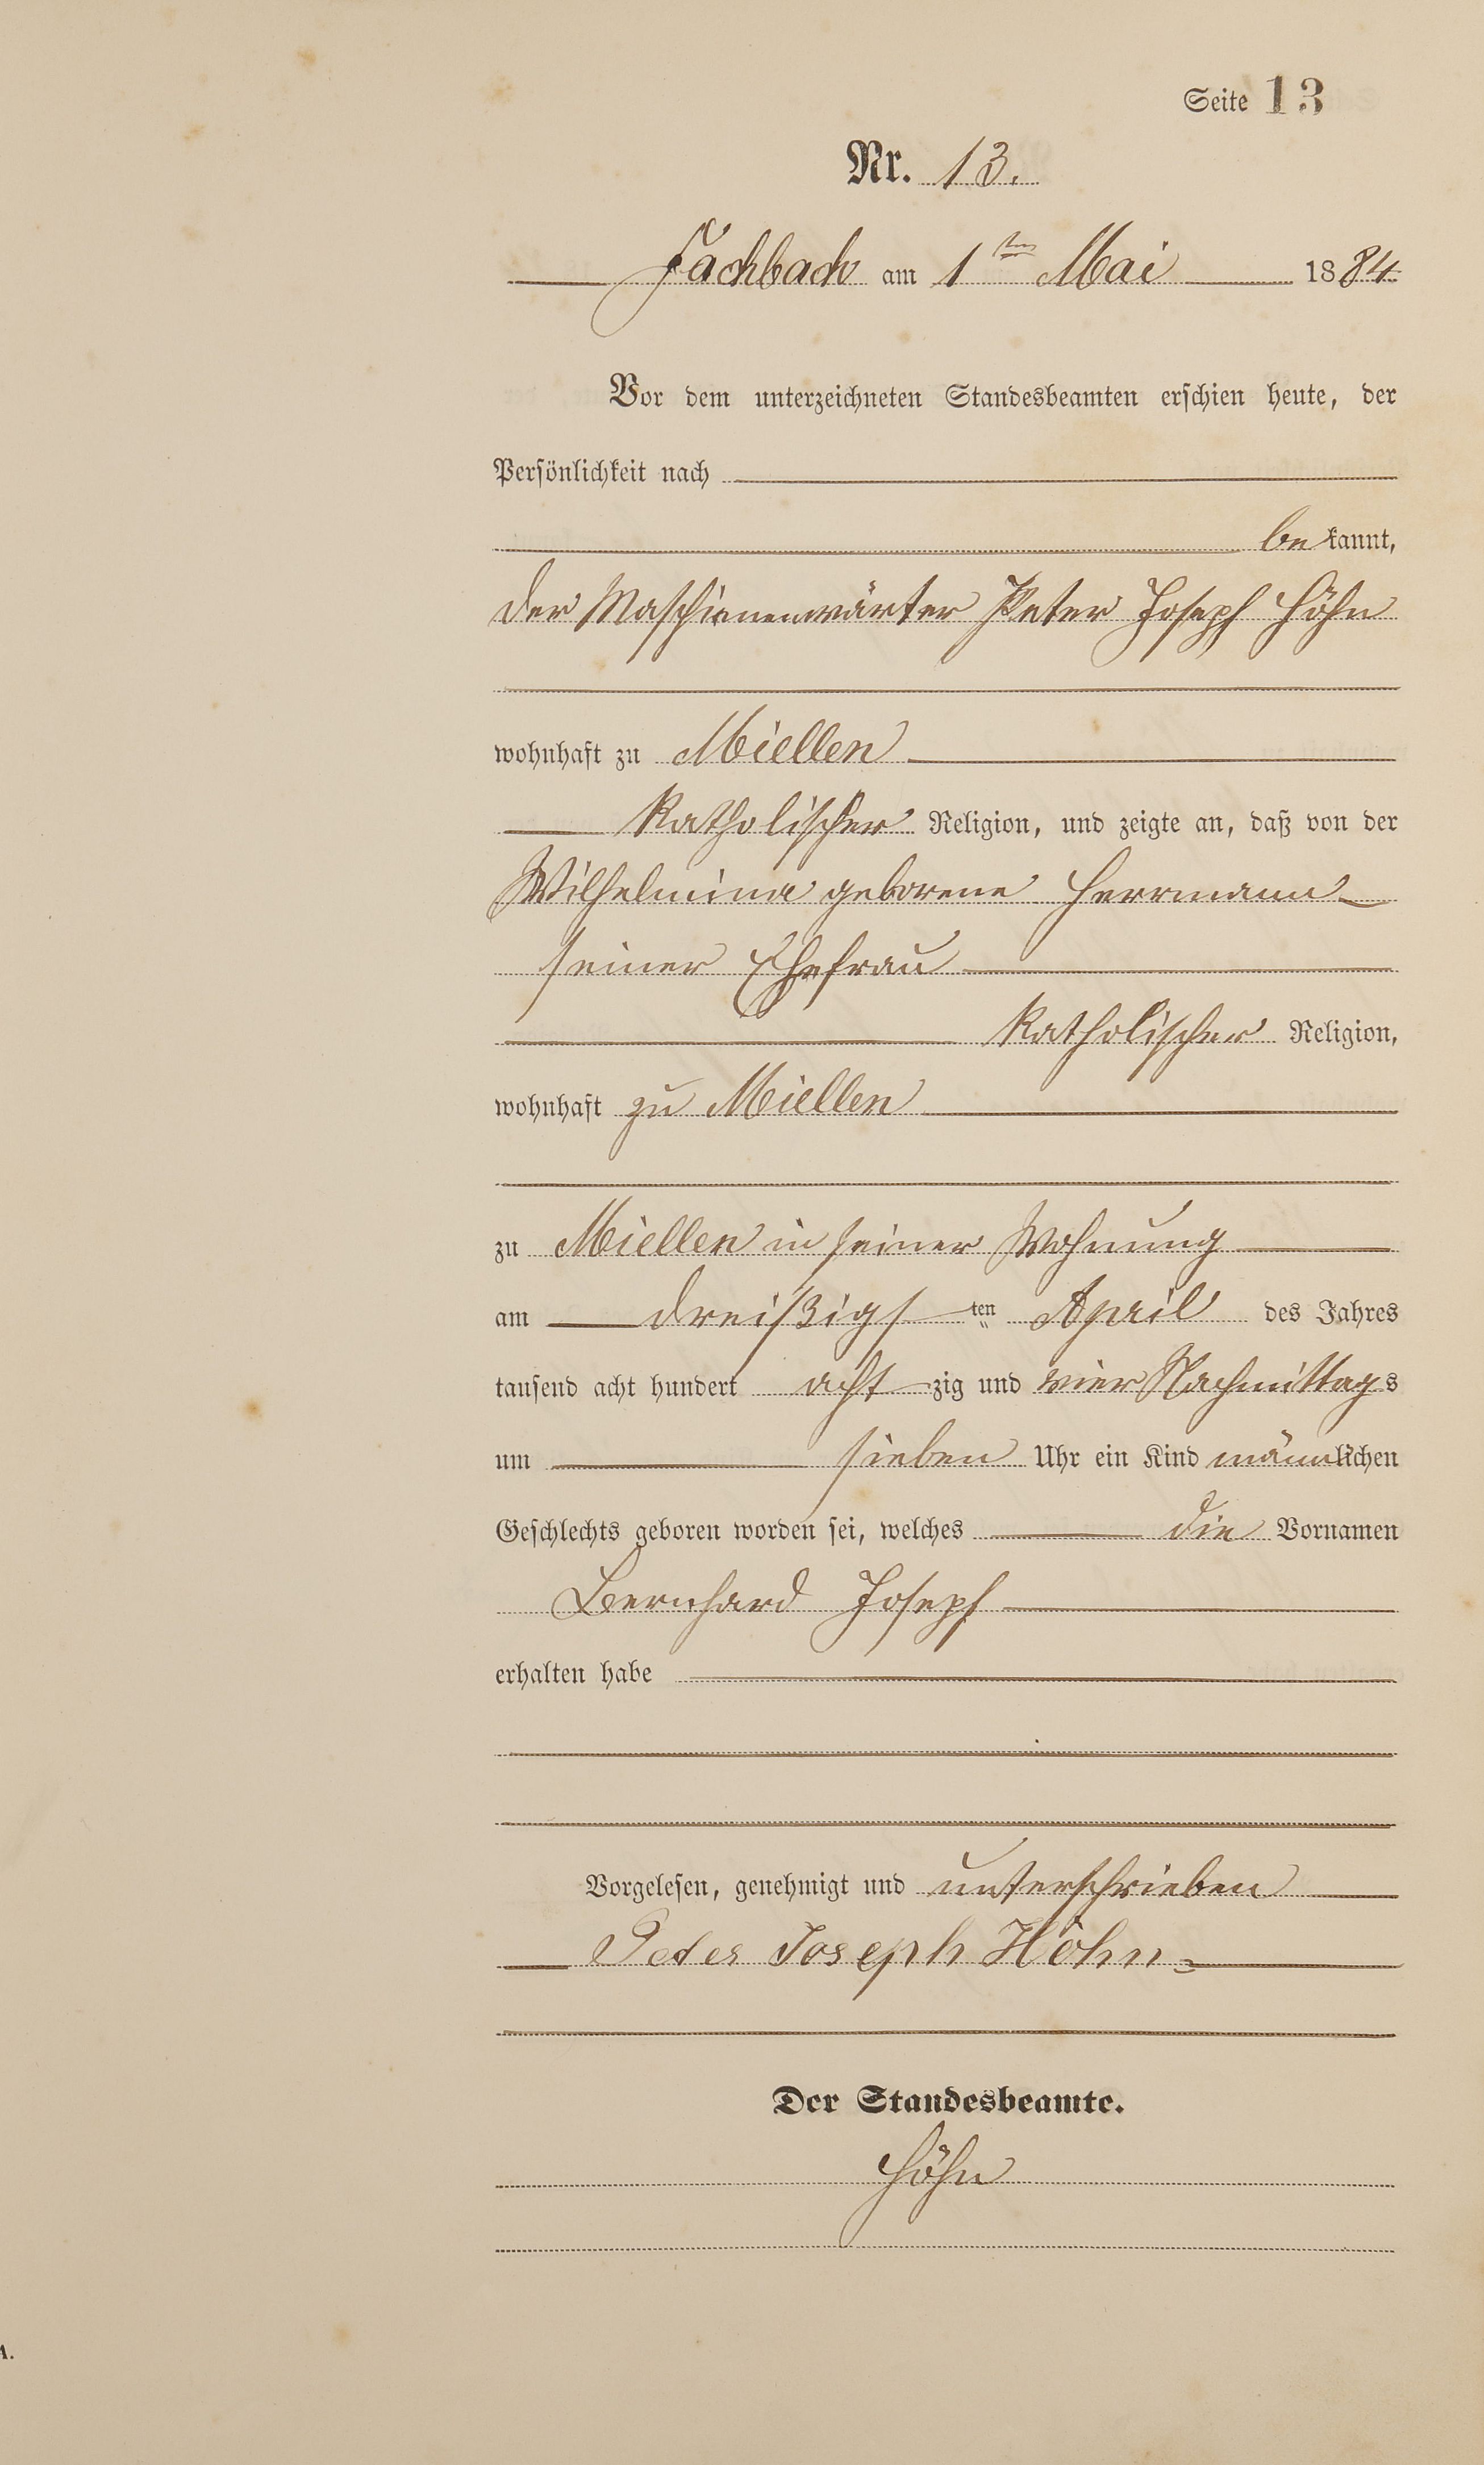 Seite 13
Nr. 13.
Fachbach am 1ten Mai 1884
Vor dem unterzeichneten Standesbeamten erschien heute, der
Persönlichkeit nach
bekannt,
der Maschienenwärter Peter Joseph Höhn
wohnhaft zu Miellen
katholischer Religion, und zeigte an, daß von der
Wilhelmina geborene Herrmann
seiner Ehefrau
katholischer Religion,
wohnhaft zu Miellen
zu Miellen in seiner Wohnung
am dreißigsten April des Jahres
tausend acht hundert achtzig und vier Nachmittags
um sieben Uhr ein Kind männlichen
Geschlechts geboren worden sei, welches die Vornamen
Bernhard Joseph
erhalten habe
Vorgelesen, genehmigt und unterschrieben
Peter Joseph Höhn
Der Standesbeamte.
Höhn
A.